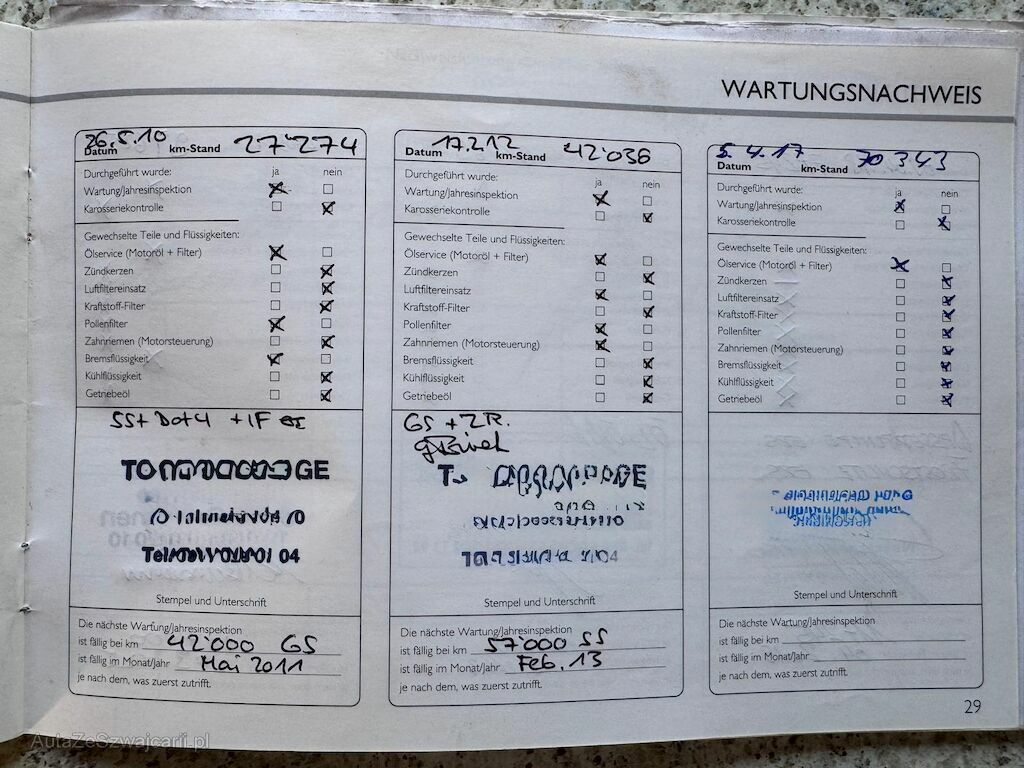 WARTUNGSNACHWEIS
26.5.10 27'274
Datum km-Stand
Durchgeführt wurde: ja nein
Wartung/Jahresinspektion
Karosseriekontrolle
Gewechselte Teile und Flüssigkeiten:
Ölservice (Motoröl + Filter)
Zündkerzen
Luftfiltereinsatz
Kraftstoff-Filter
Pollenfilter
Zahnriemen (Motorsteuerung)
Bremsflüssigkeit
Kühlflüssigkeit
Getriebeöl
SS+ Dot4 + IF
Stempel und Unterschrift
Die nächste Wartung/Jahresinspektion
ist fällig bei km 42'000 GS
ist fällig im Monat/Jahr Mai 2011
je nach dem, was zuerst zutrifft.
17.2.12 42'036
Datum km-Stand
Durchgeführt wurde: ja nein
Wartung/Jahresinspektion
Karosseriekontrolle
Gewechselte Teile und Flüssigkeiten:
Ölservice (Motoröl + Filter)
Zündkerzen
Luftfiltereinsatz
Kraftstoff-Filter
Pollenfilter
Zahnriemen (Motorsteuerung)
Bremsflüssigkeit
Kühlflüssigkeit
Getriebeöl
GS + ZR.
Stempel und Unterschrift
Die nächste Wartung/Jahresinspektion
ist fällig bei km 57'000 SS
ist fällig im Monat/Jahr Feb. 13
je nach dem, was zuerst zutrifft.
5.4.17 70343
Datum km-Stand
Durchgeführt wurde: ja nein
Wartung/Jahresinspektion
Karosseriekontrolle
Gewechselte Teile und Flüssigkeiten:
Ölservice (Motoröl + Filter)
Zündkerzen
Luftfiltereinsatz
Kraftstoff-Filter
Pollenfilter
Zahnriemen (Motorsteuerung)
Bremsflüssigkeit
Kühlflüssigkeit
Getriebeöl
Stempel und Unterschrift
Die nächste Wartung/Jahresinspektion
ist fällig bei km
ist fällig im Monat/Jahr
je nach dem, was zuerst zutrifft.
29
AutaZeSzwajcarii.pl